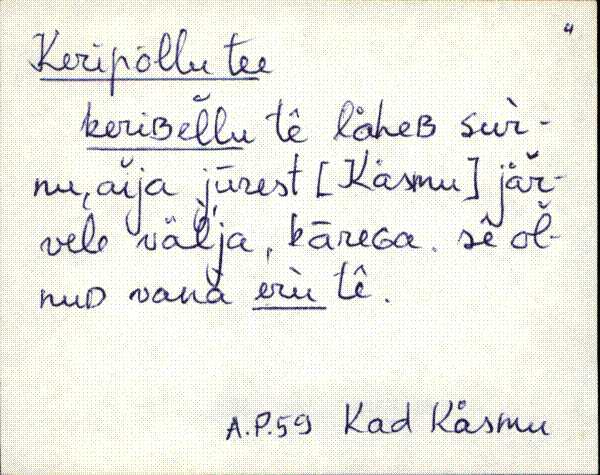 Keripõllu tee
keriʙeľľu tê lähеʙ sur̀-
nu, aĭja jūrest [Käsmu] jär̆-
vele väĺja, kāreɢa. sê oľ-
nuᴅ vanà erù tê.
A.P.59 Kad Käsmu